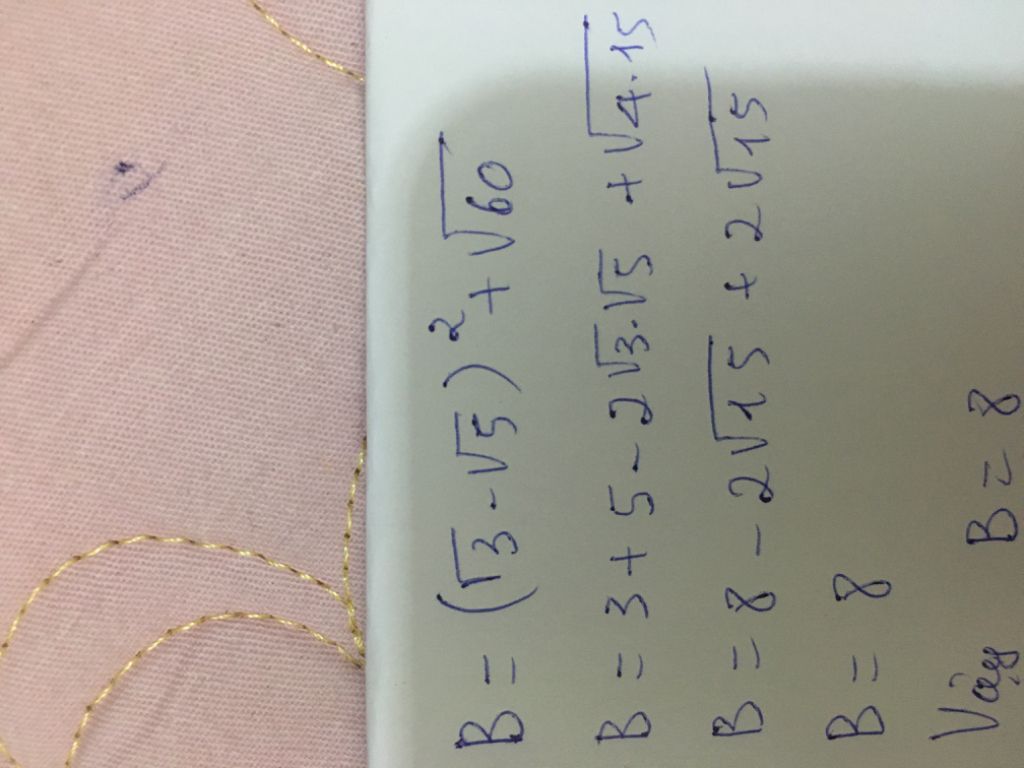 B = (√3 - √5)² + √60
B = 3 + 5 - 2√3.√5 + √4.15
B = 8 - 2√15 + 2√15
B = 8
Vậy B = 8